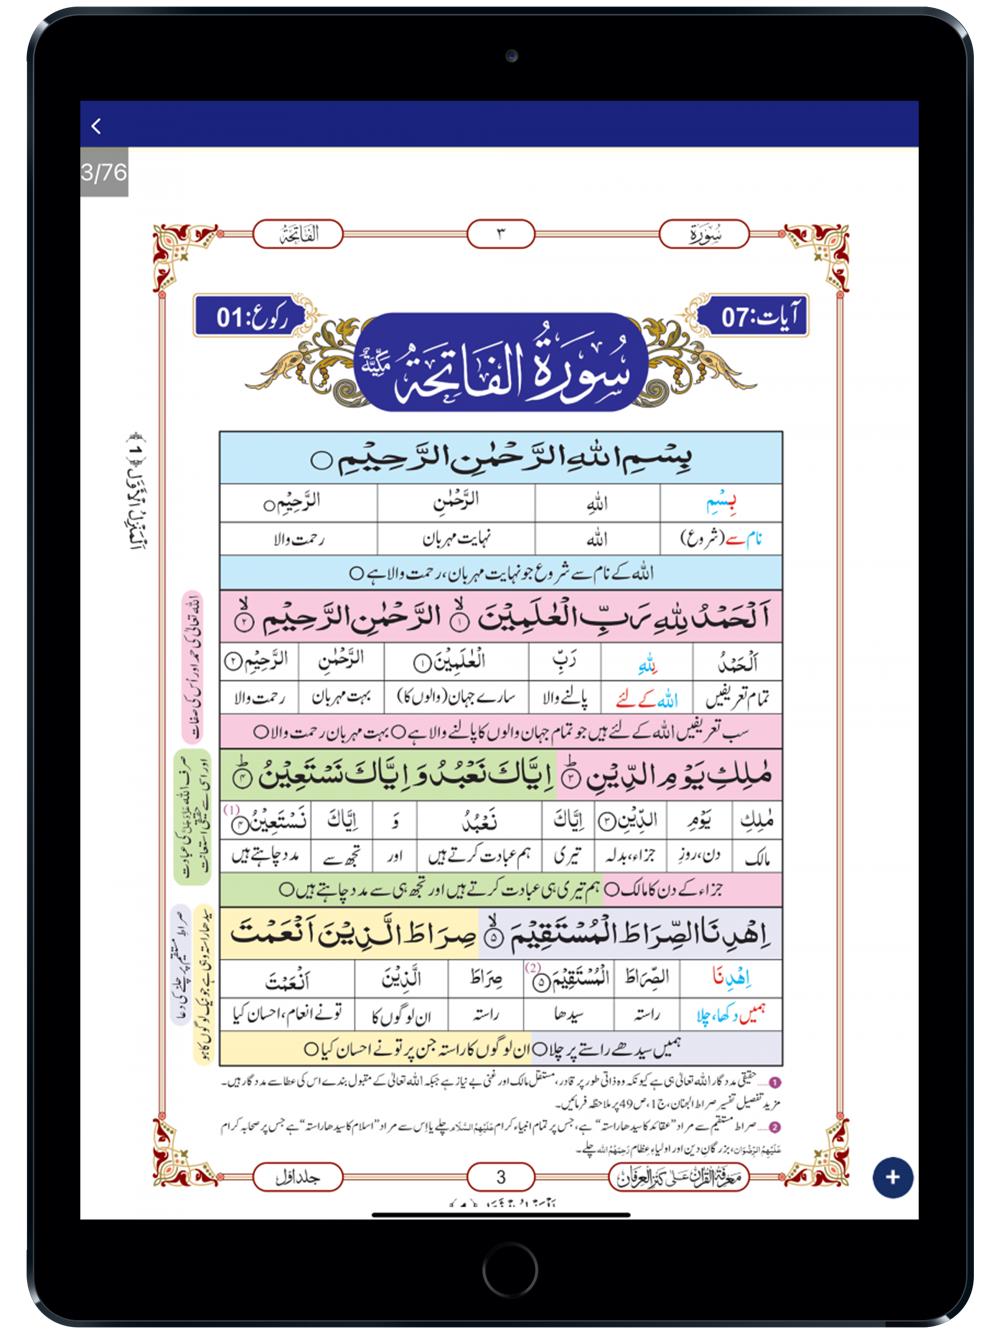 3/76
سُورَة
٣
الفَاتِحَة
آیات:07
رکوع:01
سُورَةُ الفَاتِحَة مَكِّيَّةٌ
بِسْمِ اللّٰهِ الرَّحْمٰنِ الرَّحِيْمِ ○
بِسْمِ اللّٰهِ الرَّحْمٰنِ الرَّحِيْمِ○
نام سے (شروع) اللّٰه نہایت مہربان رحمت والا
اللّٰه کے نام سے شروع جو نہایت مہربان، رحمت والا ہے ○
اَلْحَمْدُ لِلّٰهِ رَبِّ الْعٰلَمِيْنَ ۙ﴿۱﴾ الرَّحْمٰنِ الرَّحِيْمِ ۙ﴿۲﴾
اَلْحَمْدُ لِلّٰهِ رَبِّ الْعٰلَمِيْنَ ۱ الرَّحْمٰنِ الرَّحِيْمِ ۲
تمام تعریفیں اللّٰه کے لئے پالنے والا سارے جہان (والوں کا) بہت مہربان رحمت والا
سب تعریفیں اللّٰه کے لئے ہیں جو تمام جہان والوں کا پالنے والا ہے ○ بہت مہربان رحمت والا ○
مٰلِكِ يَوْمِ الدِّيْنِ ؕ﴿۳﴾ اِيَّاكَ نَعْبُدُ وَ اِيَّاكَ نَسْتَعِيْنُ ؕ﴿۴﴾
مٰلِكِ يَوْمِ الدِّيْنِ ۳ اِيَّاكَ نَعْبُدُ وَ اِيَّاكَ نَسْتَعِيْنُ ۴ (1)
مالک دن، روزِ جزاء، بدلہ تیری ہم عبادت کرتے ہیں اور تجھ سے مدد چاہتے ہیں
جزاء کے دن کا مالک ○ ہم تیری ہی عبادت کرتے ہیں اور تجھ ہی سے مدد چاہتے ہیں ○
اِهْدِنَا الصِّرَاطَ الْمُسْتَقِيْمَ ۙ﴿۵﴾ صِرَاطَ الَّذِيْنَ اَنْعَمْتَ
اِهْدِنَا الصِّرَاطَ الْمُسْتَقِيْمَ ۵ (2) صِرَاطَ الَّذِيْنَ اَنْعَمْتَ
ہمیں دکھا، چلا راستہ سیدھا راستہ ان لوگوں کا تونے انعام، احسان کیا
ہمیں سیدھے راستے پر چلا ○ ان لوگوں کا راستہ جن پر تونے احسان کیا ○
اَلْمَنْزِلُ الْاَوَّل ﴿1﴾
اللّٰه تعالیٰ کی حمد اور اُس کی صفات
صرف اللّٰه عَزَّوَجَلَّ کی عبادت
اور اسی سے حقیقی استعانت
صراطِ مستقیم پر چلنے کی دعا
سیدھا راستہ وہی ہے جو نیک لوگوں کا ہو
❶... حقیقی مددگار اللّٰه تعالیٰ ہی ہے کیونکہ وہ ذاتی طور پر قادر، مستقل مالک اور غنی بے نیاز ہے جبکہ اللّٰه تعالیٰ کے مقبول بندے اس کی عطا سے مددگار ہیں۔
مزید تفصیل تفسیر صراط الجنان، ج1، ص49 پر ملاحظہ فرمائیں۔
❷... صراط مستقیم سے مراد ”عقائد کا سیدھا راستہ“ ہے، جس پر تمام انبیاء کرام عَلَيْهِمُ السَّلَام چلے یا اس سے مراد ”اسلام کا سیدھا راستہ“ ہے جس پر صحابہ کرام
عَلَيْهِمُ الرِّضْوَان، بزرگان دین اور اولیاءِ عظام رَحِمَهُمُ الله چلے۔
معرفۃ القرآن علی کنز العرفان
3
جلد اول
+